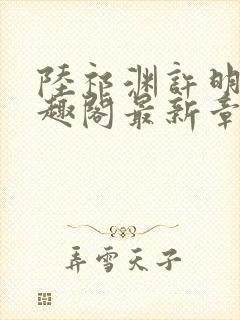 陸祁渊許明
趣閣最新章
弄雪天子